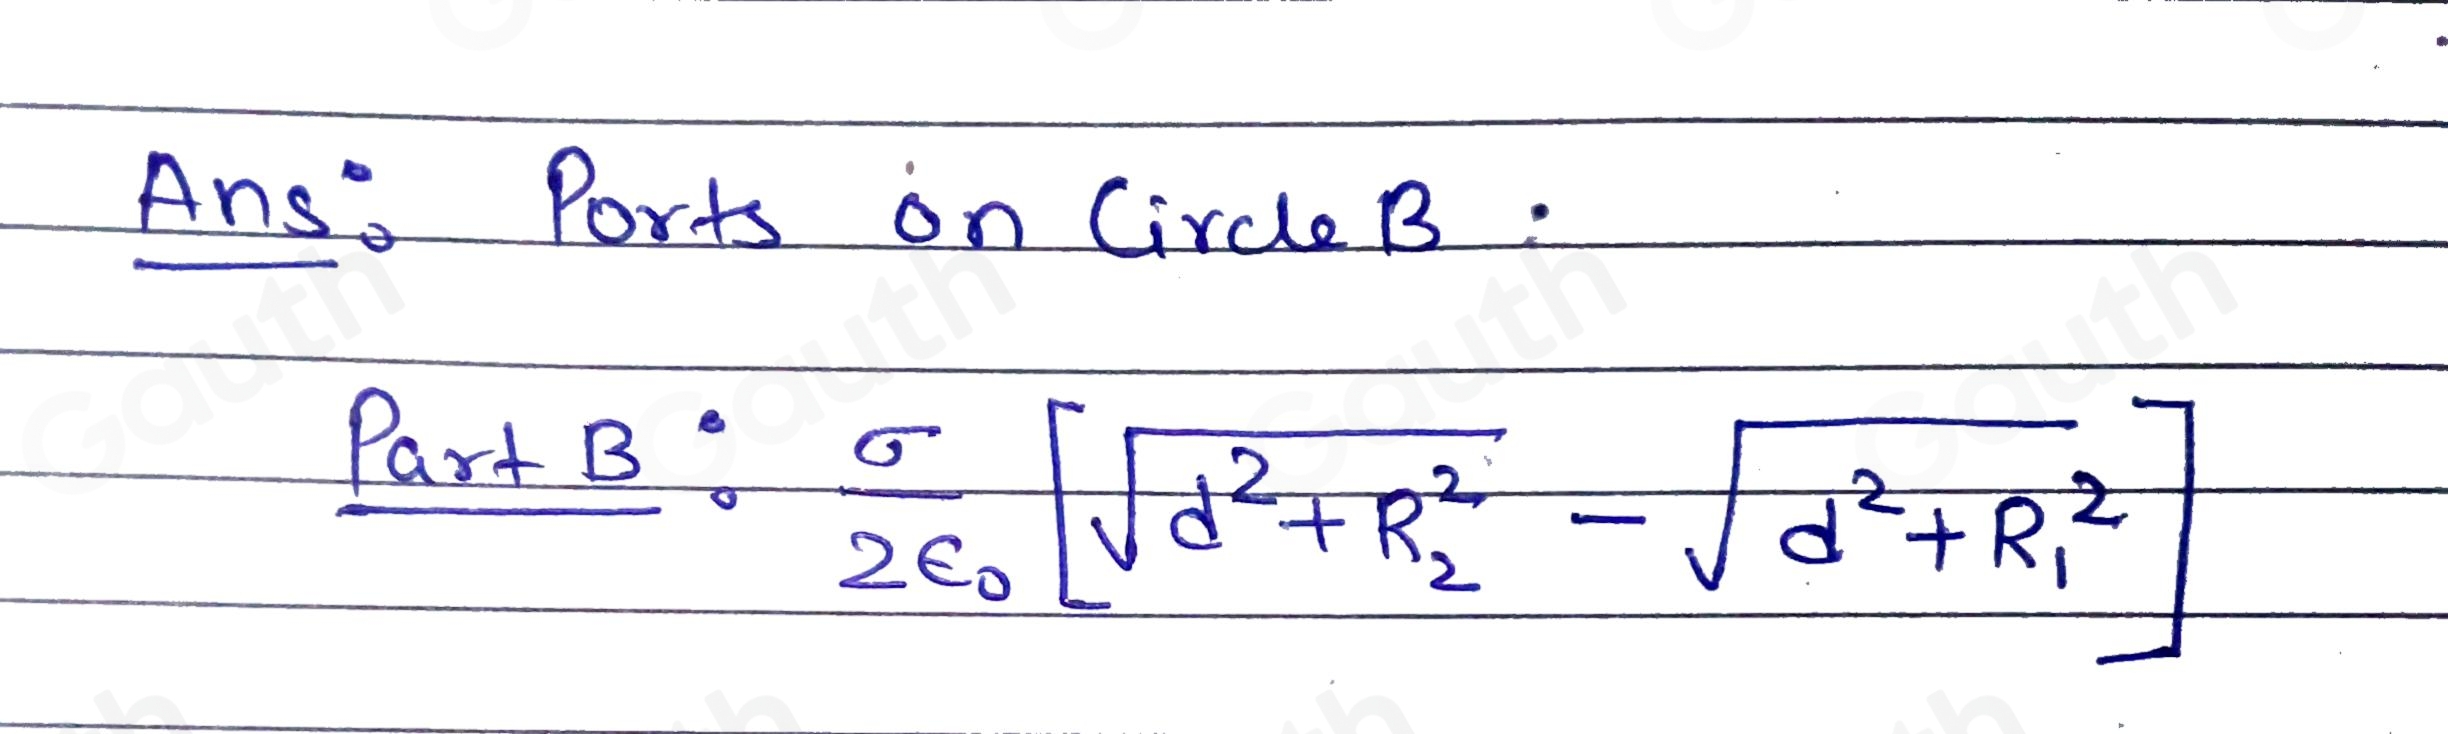 Ans: Ports on Circle B :
Part B : σ/2ε₀ [√(d²+R₂²) - √(d²+R₁²)]